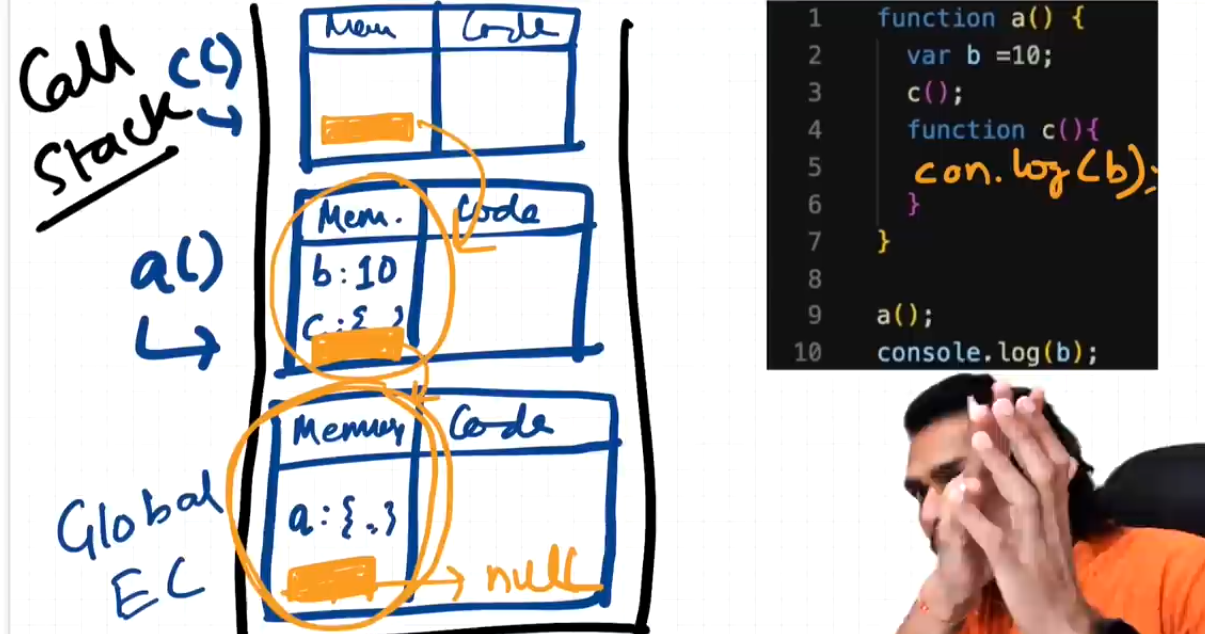 Call
Stack
c()
Mem Code
a()
Mem. Code
b : 10
c : { }
Global
EC
Memory Code
a : { . }
null
1 function a() {
2 var b =10;
3 c();
4 function c(){
5 con.log(b);
6 }
7 }
8
9 a();
10 console.log(b);